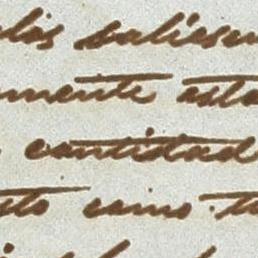 los saliesen
mente esta
cantidad
sto como